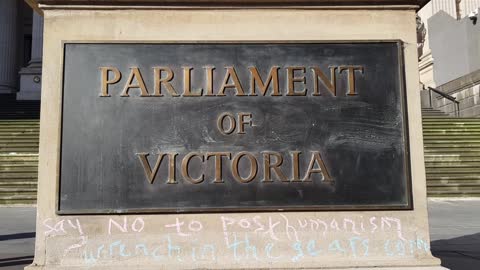 PARLIAMENT
OF
VICTORIA
say NO to Posthumanism
wrench in the gears.com